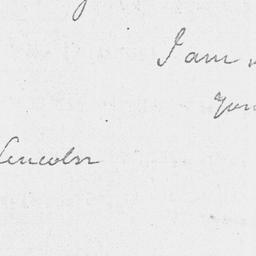 I am
you
Lincoln